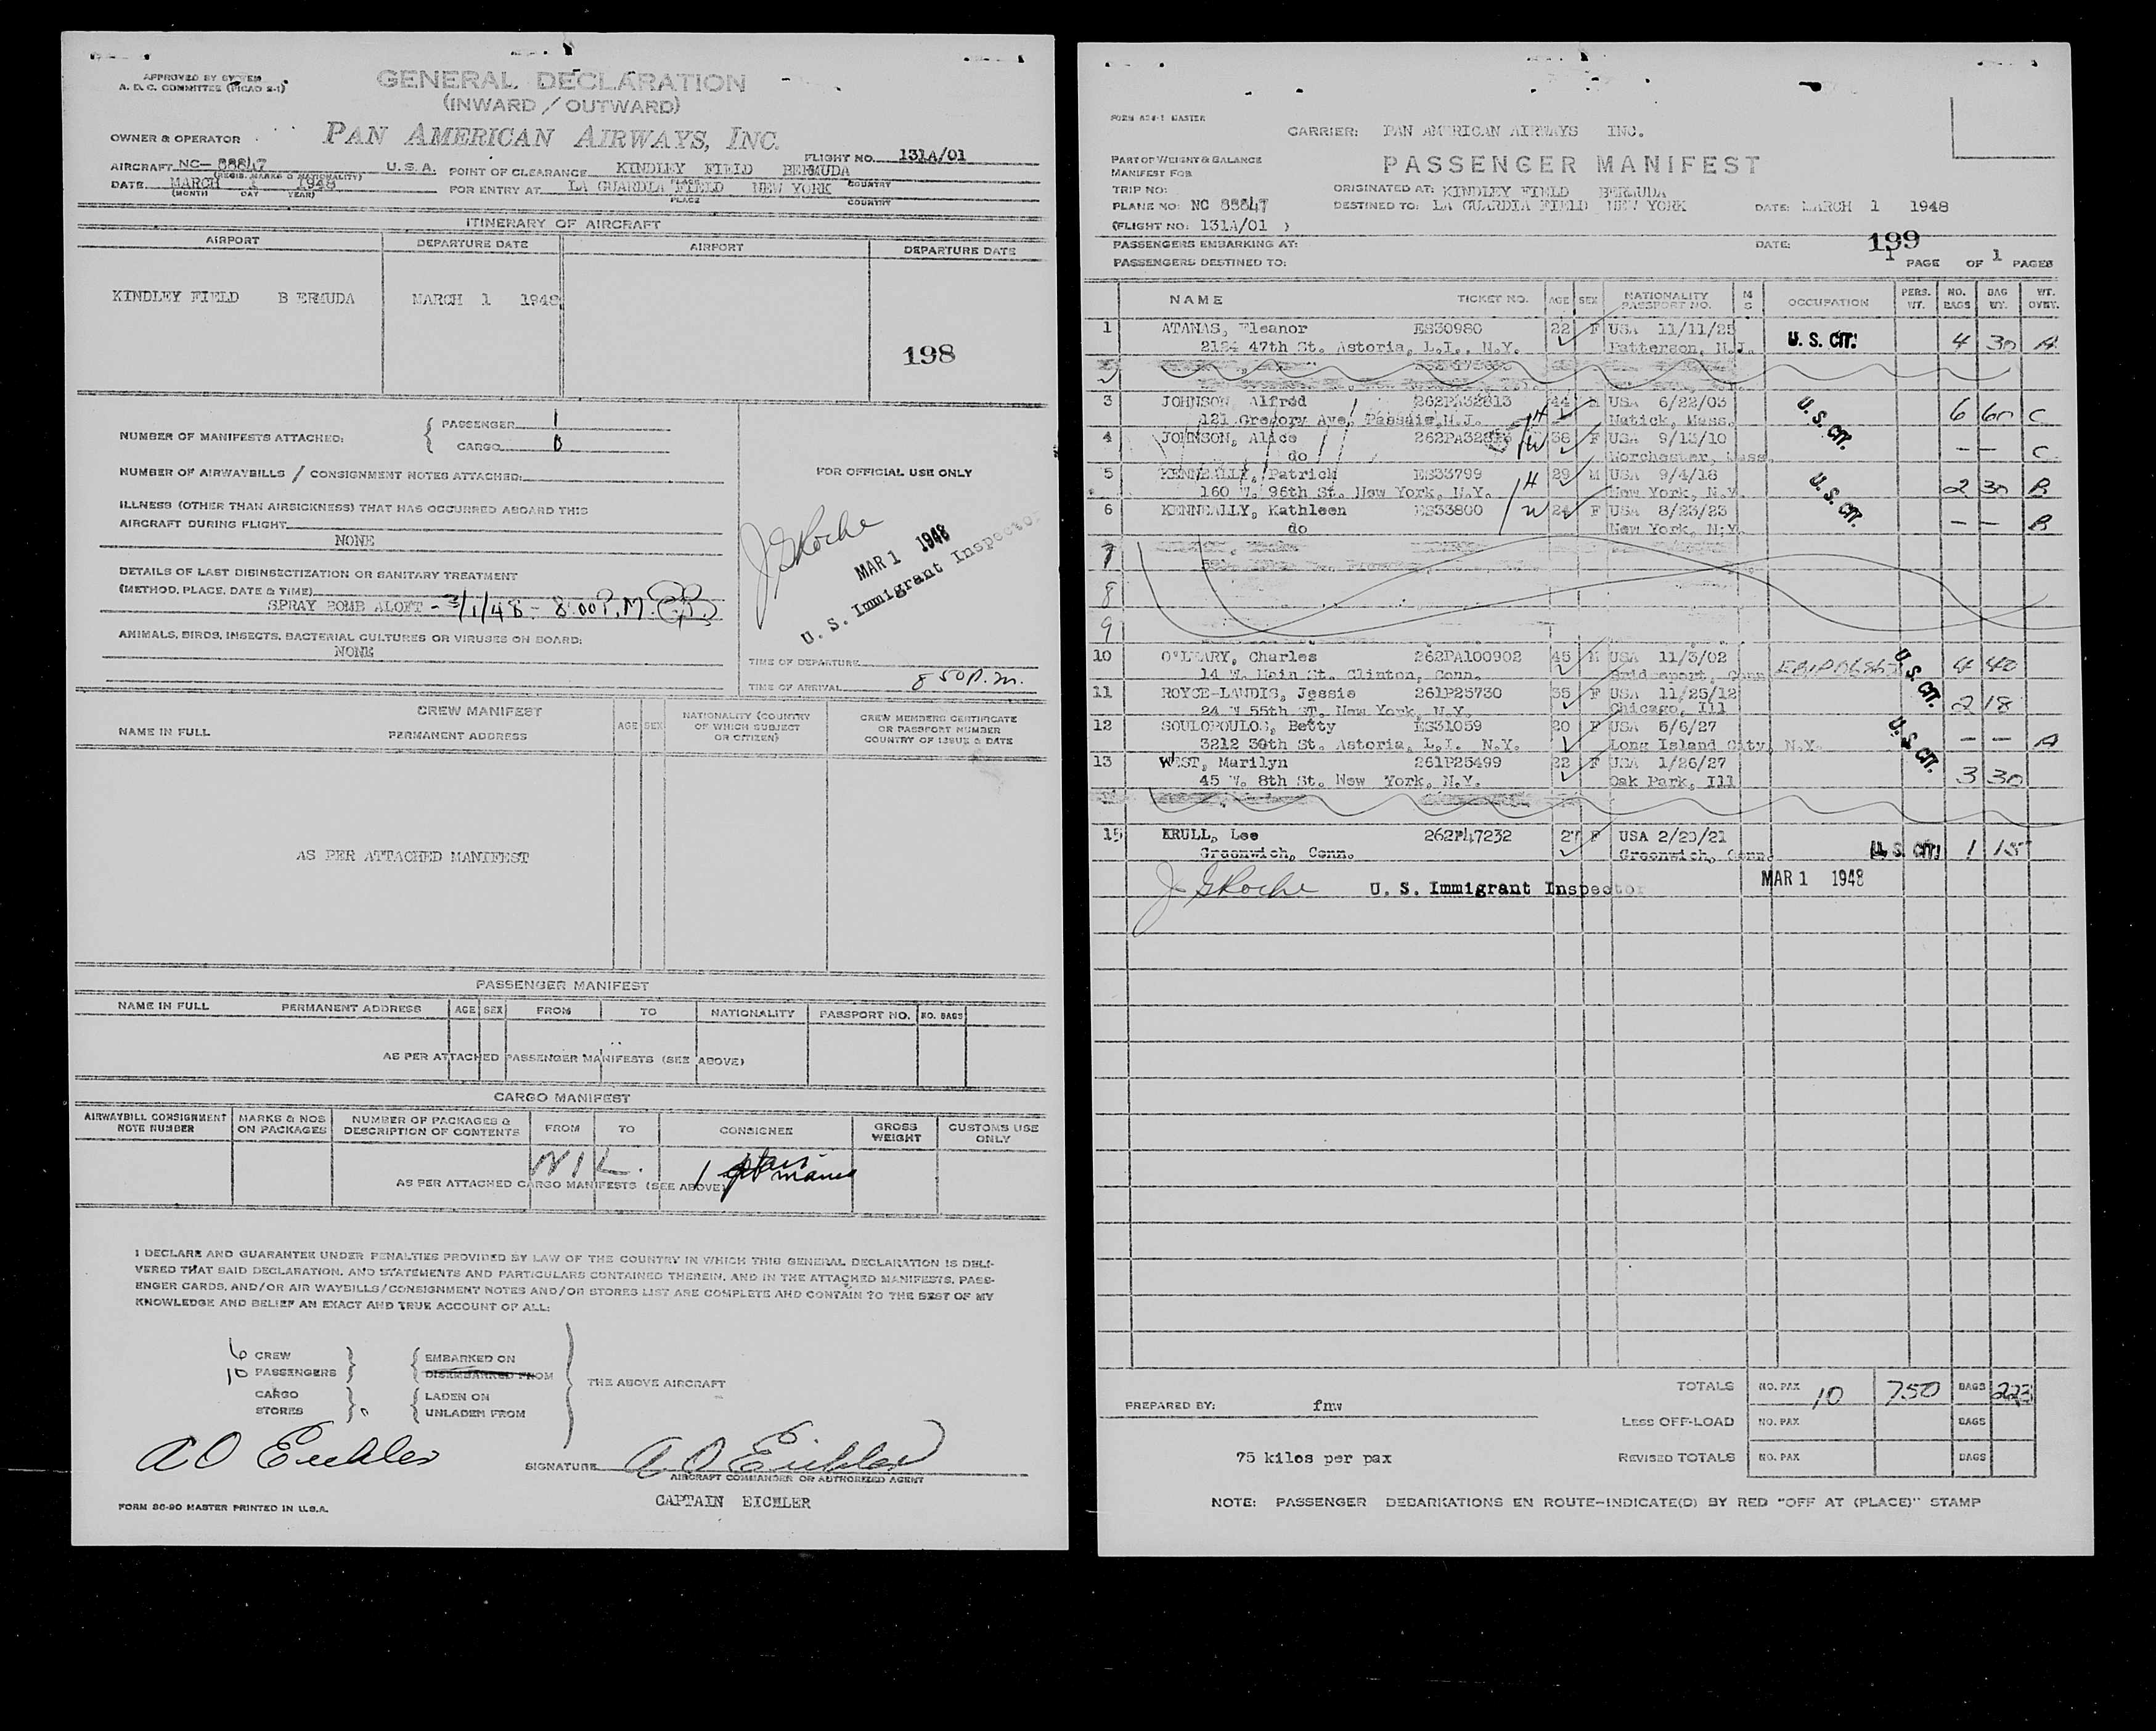 APPROVED BY
A. D. C. COMMITTEE (PICAO 2-1)
GENERAL DECLARATION
(INWARD / OUTWARD)
OWNER & OPERATOR
PAN AMERICAN AIRWAYS, INC.
AIRCRAFT NC- 88847 U.S.A.
(REGIS. MARKS & NATIONALITY)
FLIGHT NO. 131A/01
POINT OF CLEARANCE KINDLEY FIELD BERMUDA
PLACE COUNTRY
DATE MARCH 1 1948
(MONTH DAY YEAR)
FOR ENTRY AT LA GUARDIA FIELD NEW YORK
PLACE COUNTRY
ITINERARY OF AIRCRAFT
AIRPORT DEPARTURE DATE AIRPORT DEPARTURE DATE
KINDLEY FIELD B ERMUDA MARCH 1 1948
198
NUMBER OF MANIFESTS ATTACHED:
PASSENGER 1
CARGO 0
NUMBER OF AIRWAYBILLS / CONSIGNMENT NOTES ATTACHED:
ILLNESS (OTHER THAN AIRSICKNESS) THAT HAS OCCURRED ABOARD THIS
AIRCRAFT DURING FLIGHT
NONE
DETAILS OF LAST DISINSECTIZATION OR SANITARY TREATMENT
(METHOD, PLACE, DATE & TIME)
SPRAY BOMB ALOFT - 3/1/48 - 8:00 P.M.
ANIMALS, BIRDS, INSECTS, BACTERIAL CULTURES OR VIRUSES ON BOARD:
NONE
FOR OFFICIAL USE ONLY
J G Roche
MAR 1 1948
U. S. Immigrant Inspector
TIME OF DEPARTURE
TIME OF ARRIVAL 8 50 P.m.
CREW MANIFEST
NAME IN FULL PERMANENT ADDRESS AGE SEX NATIONALITY (COUNTRY OF WHICH SUBJECT OR CITIZEN) CREW MEMBERS CERTIFICATE OR PASSPORT NUMBER COUNTRY OF ISSUE & DATE
AS PER ATTACHED MANIFEST
PASSENGER MANIFEST
NAME IN FULL PERMANENT ADDRESS AGE SEX FROM TO NATIONALITY PASSPORT NO. NO. BAGS
AS PER ATTACHED PASSENGER MANIFESTS (SEE ABOVE)
CARGO MANIFEST
AIRWAYBILL CONSIGNMENT NOTE NUMBER MARKS & NOS ON PACKAGES NUMBER OF PACKAGES & DESCRIPTION OF CONTENTS FROM TO CONSIGNEE GROSS WEIGHT CUSTOMS USE ONLY
NIL.
AS PER ATTACHED CARGO MANIFESTS (SEE ABOVE)
I DECLARE AND GUARANTEE UNDER PENALTIES PROVIDED BY LAW OF THE COUNTRY IN WHICH THIS GENERAL DECLARATION IS DELI-
VERED THAT SAID DECLARATION, AND STATEMENTS AND PARTICULARS CONTAINED THEREIN, AND IN THE ATTACHED MANIFESTS, PASS-
ENGER CARDS, AND/OR AIR WAYBILLS/CONSIGNMENT NOTES AND/OR STORES LIST ARE COMPLETE AND CONTAIN TO THE BEST OF MY
KNOWLEDGE AND BELIEF AN EXACT AND TRUE ACCOUNT OF ALL:
6 CREW EMBARKED ON
10 PASSENGERS DISEMBARKED FROM
THE ABOVE AIRCRAFT
CARGO LADEN ON
STORES UNLADEN FROM
A O Eichler
SIGNATURE A O Eichler
AIRCRAFT COMMANDER OR AUTHORIZED AGENT
CAPTAIN EICHLER
FORM 86-90 MASTER PRINTED IN U.S.A.
FORM MASTER
CARRIER: PAN AMERICAN AIRWAYS INC.
PART OF WEIGHT & BALANCE
MANIFEST FOR
PASSENGER MANIFEST
TRIP NO:
ORIGINATED AT: KINDLEY FIELD BERMUDA
PLANE NO: NC 88847
DESTINED TO: LA GUARDIA FIELD NEW YORK
DATE: MARCH 1 1948
(FLIGHT NO: 131A/01 )
PASSENGERS EMBARKING AT:
DATE:
199
PASSENGERS DESTINED TO:
1 PAGE OF 1 PAGES
NAME TICKET NO. AGE SEX NATIONALITY PASSPORT NO. M S OCCUPATION PERS. WT. NO. BAGS BAG WT. WT. OVRT.
1 ATANAS, Eleanor ES30980 22 F USA 11/11/25 U. S. CIT. 4 30 A
2124 47th St. Astoria, L.I., N.Y. Patterson, N.J.
3 JOHNSON, Alfred 262PA32813 44 M USA 6/22/03 U. S. CIT. 6 60 C
121 Gregory Ave. Passaic, N.J. Natick, Mass.
4 JOHNSON, Alice 38 F USA 9/13/10 — — C
do Worchester, Mass.
5 KENNEALLY, Patrick ES33799 29 M USA 9/4/18 U. S. CIT. 2 30 B
160 W. 96th St. New York, N.Y. New York, N.Y.
6 KENNEALLY, Kathleen ES33800 24 F USA 8/23/23 — — B
do New York, N.Y.
7
8
9
10 O'LEARY, Charles 262PA100902 45 M USA 11/3/02 U. S. CIT. 4 40
14 W. Main St. Clinton, Conn. Bridgeport, Conn
11 ROYCE-LANDIS, Jessie 261P25730 35 F USA 11/25/12 2 18
24 W 55th ST. New York, N.Y. Chicago, Ill
12 SOULOPOULOS, Betty ES31059 20 F USA 5/6/27 U. S. CIT. — — A
3212 30th St. Astoria, L.I. N.Y. Long Island City, N.Y.
13 WEST, Marilyn 261P25499 22 F USA 1/26/27 3 30
45 W. 8th St. New York, N.Y. Oak Park, Ill
15 KRULL, Lee 262P47232 27 F USA 2/20/21 U. S. CIT. 1 15
Greenwich, Conn. Greenwich, Conn.
J G Roche U. S. Immigrant Inspector MAR 1 1948
TOTALS NO. PAX 10 750 BAGS 223
PREPARED BY: fnw
LESS OFF-LOAD NO. PAX BAGS
75 kilos per pax
REVISED TOTALS NO. PAX BAGS
NOTE: PASSENGER DEBARKATIONS EN ROUTE-INDICATE(D) BY RED "OFF AT (PLACE)" STAMP